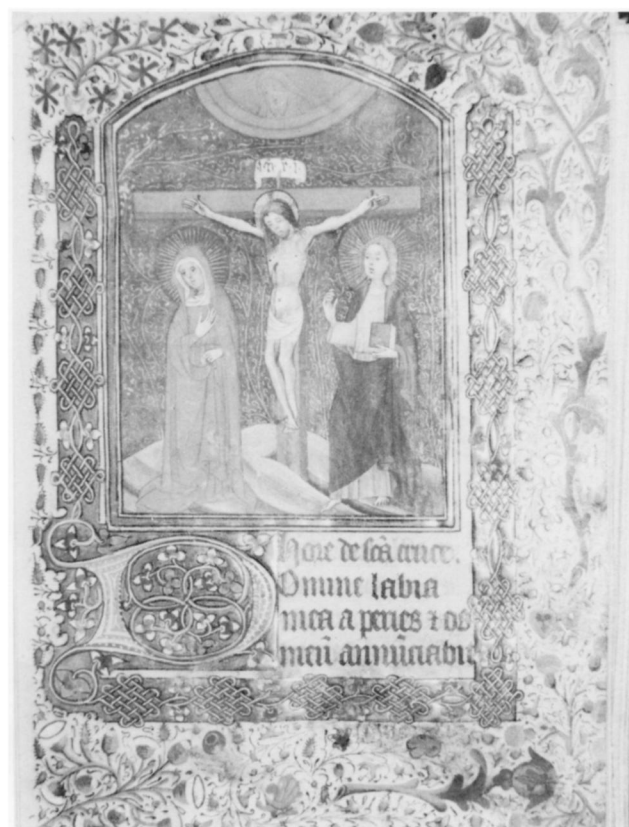 Hore de scā cruce.
Domine labia
mea a peries ⁊ os
meū annūciabit